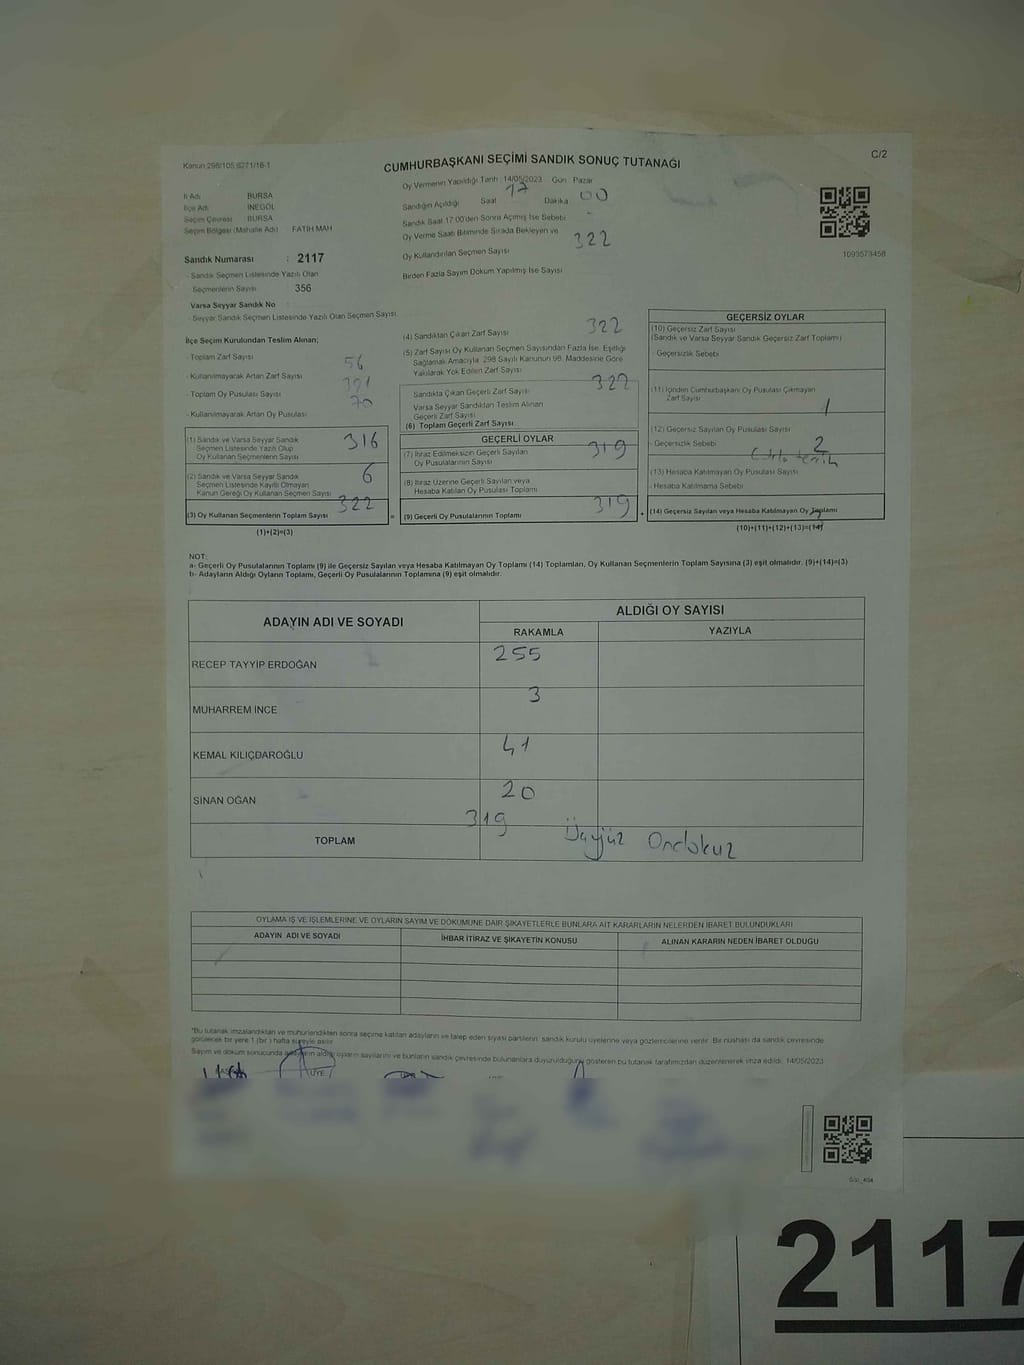 Kanun 298/105 6271/16-1
CUMHURBAŞKANI SEÇİMİ SANDIK SONUÇ TUTANAĞI
C/2
İl Adı BURSA
İlçe Adı INEGÖL
Seçim Çevresi BURSA
Seçim Bölgesi (Mahalle Adı) FATİH MAH
Sandık Numarası : 2117
- Sandık Seçmen Listesinde Yazılı Olan
Seçmenlerin Sayısı 356
Varsa Seyyar Sandık No
- Seyyar Sandık Seçmen Listesinde Yazılı Olan Seçmen Sayısı
Oy Vermenin Yapıldığı Tarih : 14/05/2023 Gün : Pazar
Sandığın Açıldığı Saat 17 Dakika 00
Sandık Saat 17.00'den Sonra Açılmış İse Sebebi -
Oy Verme Saati Bitiminde Sırada Bekleyen ve
Oy Kullandırılan Seçmen Sayısı 322
Birden Fazla Sayım Döküm Yapılmış İse Sayısı
1093573458
İlçe Seçim Kurulundan Teslim Alınan;
- Toplam Zarf Sayısı
- Kullanılmayarak Artan Zarf Sayısı 56
- Toplam Oy Pusulası Sayısı
- Kullanılmayarak Artan Oy Pusulası 70
(1) Sandık ve Varsa Seyyar Sandık
Seçmen Listesinde Yazılı Olup
Oy Kullanan Seçmenlerin Sayısı 316
(2) Sandık ve Varsa Seyyar Sandık
Seçmen Listesinde Kayıtlı Olmayan
Kanun Gereği Oy Kullanan Seçmen Sayısı 6
(3) Oy Kullanan Seçmenlerin Toplam Sayısı 322
(1)+(2)=(3)
(4) Sandıktan Çıkan Zarf Sayısı 322
(5) Zarf Sayısı Oy Kullanan Seçmen Sayısından Fazla İse, Eşitliği
Sağlamak Amacıyla 298 Sayılı Kanunun 98. Maddesine Göre
Yakılarak Yok Edilen Zarf Sayısı
Sandıkta Çıkan Geçerli Zarf Sayısı 322
Varsa Seyyar Sandıktan Teslim Alınan
Geçerli Zarf Sayısı
(6) Toplam Geçerli Zarf Sayısı
GEÇERLİ OYLAR
(7) İtiraz Edilmeksizin Geçerli Sayılan
Oy Pusulalarının Sayısı 319
(8) İtiraz Üzerine Geçerli Sayılan veya
Hesaba Katılan Oy Pusulası Toplamı
= (9) Geçerli Oy Pusulalarının Toplamı 319 +
GEÇERSİZ OYLAR
(10) Geçersiz Zarf Sayısı
(Sandık ve Varsa Seyyar Sandık Geçersiz Zarf Toplamı)
- Geçersizlik Sebebi
(11) İçinden Cumhurbaşkanı Oy Pusulası Çıkmayan
Zarf Sayısı 1
(12) Geçersiz Sayılan Oy Pusulası Sayısı 2
- Geçersizlik Sebebi
(13) Hesaba Katılmayan Oy Pusulası Sayısı
- Hesaba Katılmama Sebebi
(14) Geçersiz Sayılan veya Hesaba Katılmayan Oy Toplamı
(10)+(11)+(12)+(13)=(14)
NOT:
a- Geçerli Oy Pusulalarının Toplamı (9) ile Geçersiz Sayılan veya Hesaba Katılmayan Oy Toplamı (14) Toplamları, Oy Kullanan Seçmenlerin Toplam Sayısına (3) eşit olmalıdır. (9)+(14)=(3)
b- Adayların Aldığı Oyların Toplamı, Geçerli Oy Pusulalarının Toplamına (9) eşit olmalıdır.
ADAYIN ADI VE SOYADI ALDIĞI OY SAYISI
RAKAMLA YAZIYLA
RECEP TAYYİP ERDOĞAN 255
MUHARREM İNCE 3
KEMAL KILIÇDAROĞLU 41
SİNAN OĞAN 20
TOPLAM 319 Üçyüz Ondokuz
OYLAMA İŞ VE İŞLEMLERİNE VE OYLARIN SAYIM VE DÖKÜMÜNE DAİR ŞİKAYETLERLE BUNLARA AİT KARARLARIN NELERDEN İBARET BULUNDUKLARI
ADAYIN ADI VE SOYADI İHBAR İTİRAZ VE ŞİKAYETİN KONUSU ALINAN KARARIN NEDEN İBARET OLDUĞU
*Bu tutanak imzalandıktan ve mühürlendikten sonra seçime katılan adayların ve talep eden siyasi partilerin sandık kurulu üyelerine veya gözlemcilerine verilir. Bir nüshası da sandık çevresinde
görülecek bir yere 1 (bir) hafta süreyle asılır.
Sayım ve döküm sonucunda adayların aldığı oyların sayılarını ve bunların sandık çevresinde bulunanlara duyurulduğunu gösteren bu tutanak tarafımızdan düzenlenerek imza edildi. 14/05/2023
ÜYE
2117